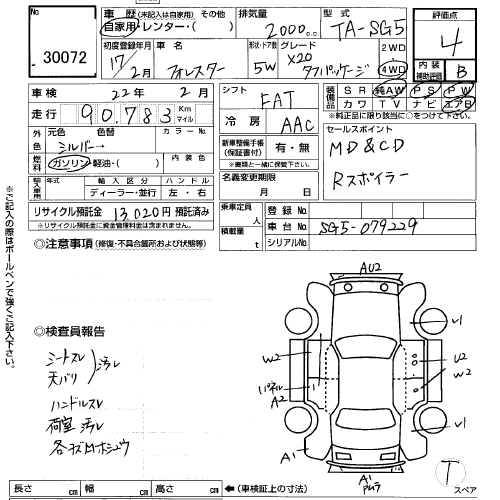 No 30072
車歴 (未記入は自家用) その他
自家用・レンター・( )
排気量 2000cc
型式 TA-SG5
評価点 4
内装補助評価 B
初度登録年月 17年2月
車名 フォレスター
形状・ドア数 5W
グレード X20 タフパッケージ
2WD
4WD
車検 22年2月
走行 90,783 Km マイル
シフト FAT
冷房 AAC
装備品 SR 純AW PS PW
カワ TV ナビ エアB
※純正品に限り○をつけて下さい。
外色 元色 色替 カラーNo.
シルバー→
燃料 ガソリン・軽油・( ) 内装色
輸入車用 年式 輸入区分 ハンドル
ディーラー・並行 左・右
新車整備手帳(保証書付) 有・無
※書面と一緒に保管して下さい。
名義変更期限 月 日
セールスポイント
MD&CD
Rスポイラー
リサイクル預託金 13,020円 預託済み
※リサイクル預託金に資金管理料金は含まれません。
乗車定員 人
積載量 t
登録No.
車台No. SG5-079229
シリアルNo.
※ご記入の際はボールペンで強くご記入下さい。
◎注意事項 (修復・不具合箇所および状態等)
◎検査員報告
シートスレ
天バリ 汚レ
ハンドルスレ
荷室汚レ
各キズ凹ホシュウ
AU2
U1
W2
U2
W2
パネル
A2
U1
A1
A1
T
スペア
長さ cm 幅 cm 高さ cm ←(車検証上の寸法)